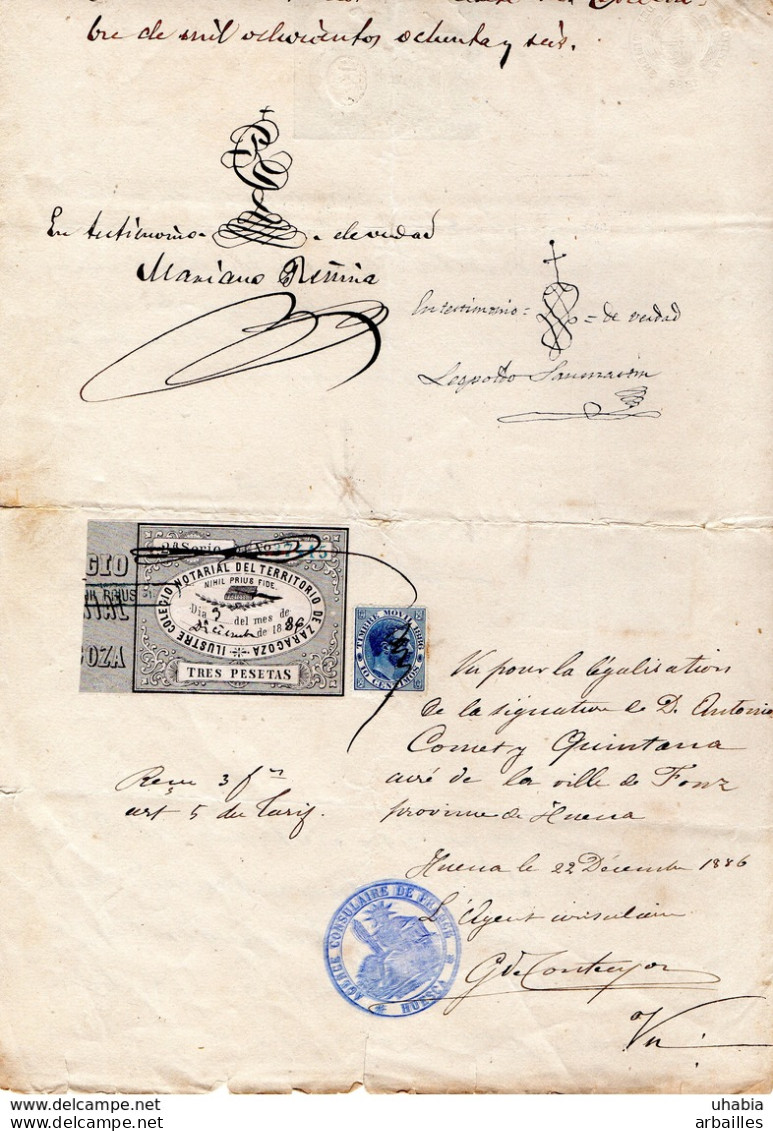 bre de mil ochocientos ochenta y seis.
En testimonio de verdad
Mariano
En testimonio = = de verdad
Leopoldo
GIO
2ª Serie
ILUSTRE COLEGIO NOTARIAL DEL TERRITORIO DE ZARAGOZA
NIHIL PRIUS FIDE
Dia 3 del mes de
Diciembre de 1886
OZA
TRES PESETAS
TIMBRE MOVIL 1886
10 CENTIMOS
Vu pour la légalisation
de la signature de D. Antonio
Comet y Quintana
curé de la ville de Fonz
province de Huesca
Reçu 3 f
art 5 du Tarif.
Huesca le 22 Décembre 1886
L'Agent consulaire
AGENCE CONSULAIRE DE FRANCE
HUESCA
Vu
delcampe.net
uhabia
arbailles